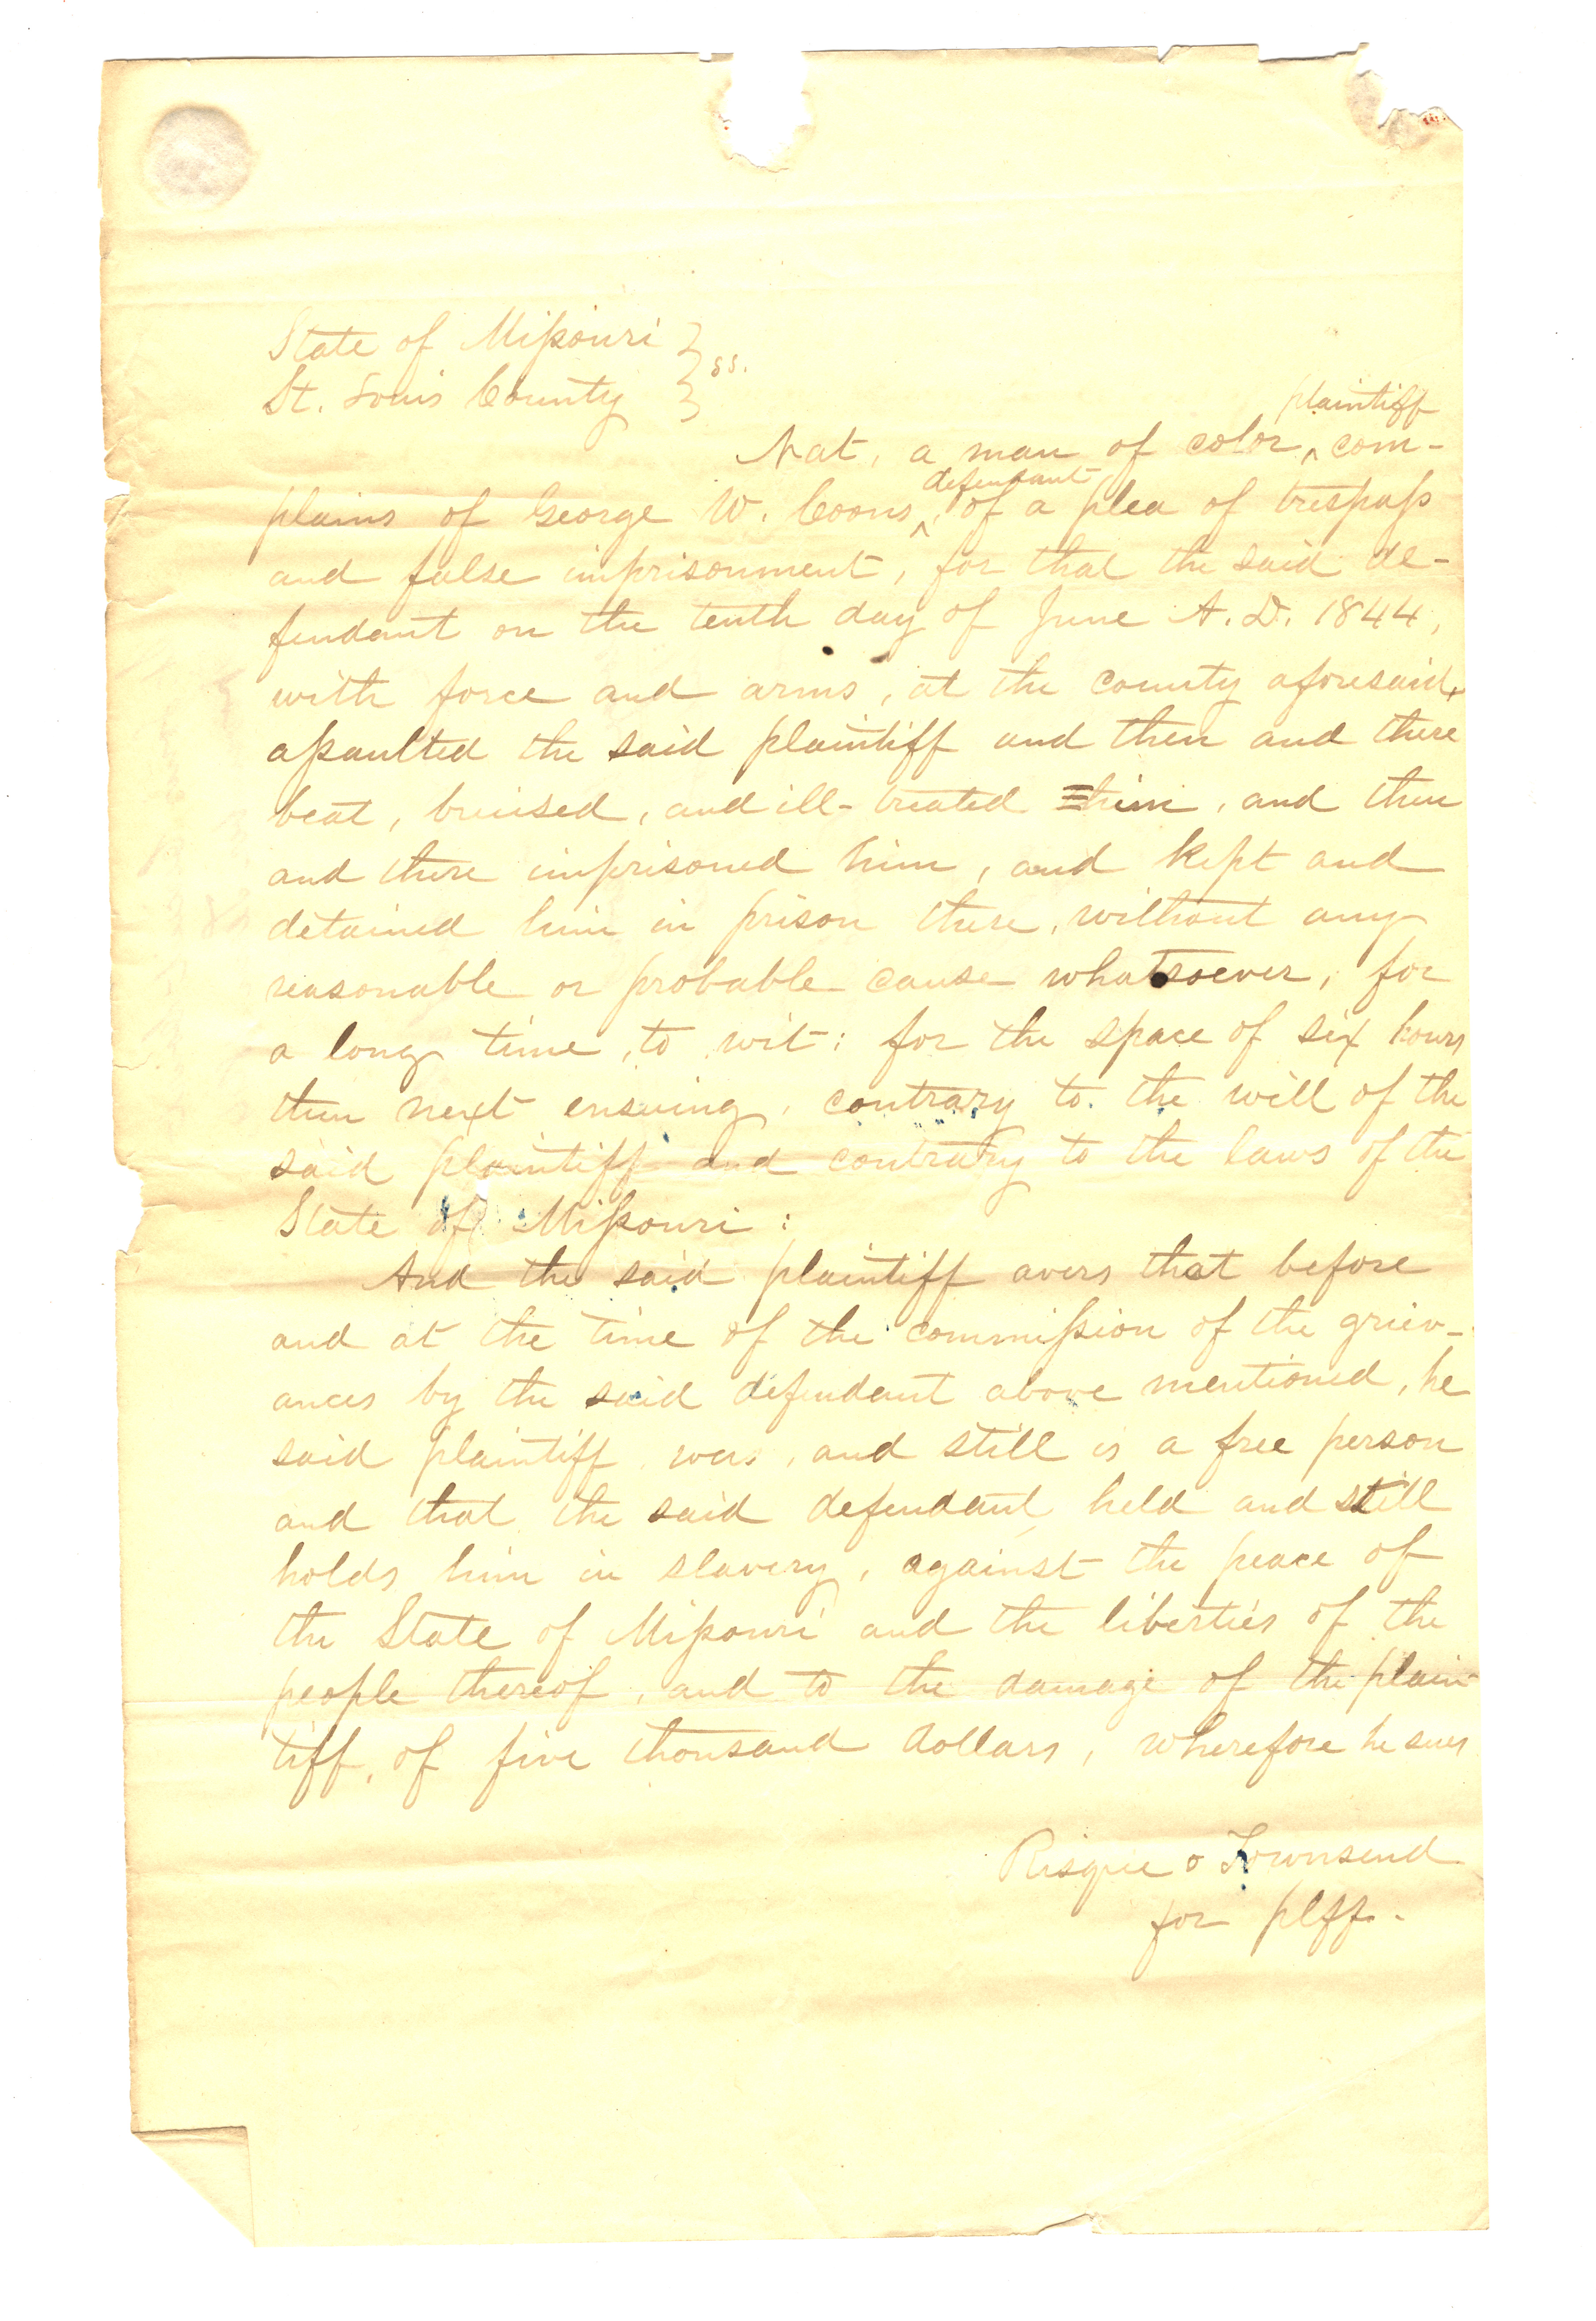 State of Missouri }
St. Louis County } ss.
plaintiff
Nat, a man of color, ^ com-
defendant
plains of George W. Coons, ^ of a plea of trespass
and false imprisonment, for that the said de-
fendant on the tenth day of June A.D. 1844,
with force and arms, at the county aforesaid,
assaulted the said plaintiff and then and there
beat, bruised, and ill-treated him, and then
and there imprisoned him, and kept and
detained him in prison there, without any
reasonable or probable cause whatsoever, for
a long time, to wit: for the space of six hours
then next ensuing, contrary to the will of the
said plaintiff and contrary to the laws of the
State of Missouri:
And the said plaintiff avers that before
and at the time of the commission of the griev-
ances by the said defendant above mentioned, he
said plaintiff was, and still is a free person
and that the said defendant held and still
holds him in slavery, against the peace of
the State of Missouri and the liberties of the
people thereof, and to the damage of the plain-
tiff, of five thousand dollars, wherefore he sues
Risque & Townsend
for plff.